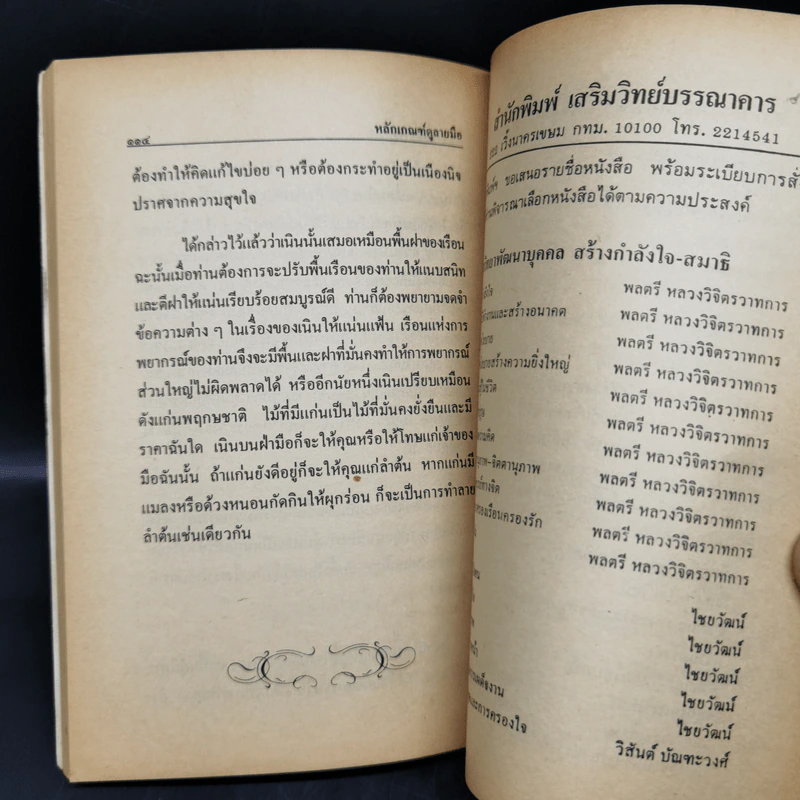 ๑๑๔
หลักเกณฑ์ดูลายมือ
ต้องทำให้คิดแก้ไขบ่อย ๆ หรือต้องกระทำอยู่เป็นเนืองนิจ
ปราศจากความสุขใจ
ได้กล่าวไว้แล้วว่าเนินนั้นเสมอเหมือนพื้นฝาของเรือน
ฉะนั้นเมื่อท่านต้องการจะปรับพื้นเรือนของท่านให้แนบสนิท
และตีฝาให้แน่นเรียบร้อยสมบูรณ์ดี ท่านก็ต้องพยายามจดจำ
ข้อความต่าง ๆ ในเรื่องของเนินให้แน่นแฟ้น เรือนแห่งการ
พยากรณ์ของท่านจึงจะมีพื้นและฝาที่มั่นคงทำให้การพยากรณ์
ส่วนใหญ่ไม่ผิดพลาดได้ หรืออีกนัยหนึ่งเนินเปรียบเหมือน
ดังแก่นพฤกษชาติ ไม้ที่มีแก่นเป็นไม้ที่มั่นคงยั่งยืนและมี
ราคาฉันใด เนินบนฝ่ามือก็จะให้คุณหรือให้โทษแก่เจ้าของ
มือฉันนั้น ถ้าแก่นยังดีอยู่ก็จะให้คุณแก่ลำต้น หากแก่นมี
แมลงหรือด้วงหนอนกัดกินให้ผุกร่อน ก็จะเป็นการทำลาย
ลำต้นเช่นเดียวกัน
สำนักพิมพ์ เสริมวิทย์บรรณาคาร
เวิ้งนาครเขษม กทม. 10100 โทร. 2214541
ขอเสนอรายชื่อหนังสือ พร้อมระเบียบการสั่
เลือกหนังสือได้ตามความประสงค์
พัฒนาบุคคล สร้างกำลังใจ-สมาธิ
พลตรี หลวงวิจิตรวาทการ
และสร้างอนาคต พลตรี หลวงวิจิตรวาทการ
พลตรี หลวงวิจิตรวาทการ
สร้างความยิ่งใหญ่ พลตรี หลวงวิจิตรวาทการ
ชีวิต พลตรี หลวงวิจิตรวาทการ
พลตรี หลวงวิจิตรวาทการ
ความคิด พลตรี หลวงวิจิตรวาทการ
จิตตานุภาพ พลตรี หลวงวิจิตรวาทการ
ทางจิต พลตรี หลวงวิจิตรวาทการ
ครองเรือนครองรัก พลตรี หลวงวิจิตรวาทการ
พลตรี หลวงวิจิตรวาทการ
ไชยวัฒน์
ไชยวัฒน์
ไชยวัฒน์
ไชยวัฒน์
ไชยวัฒน์
และการครองใจ วิสันต์ บัณฑะวงศ์